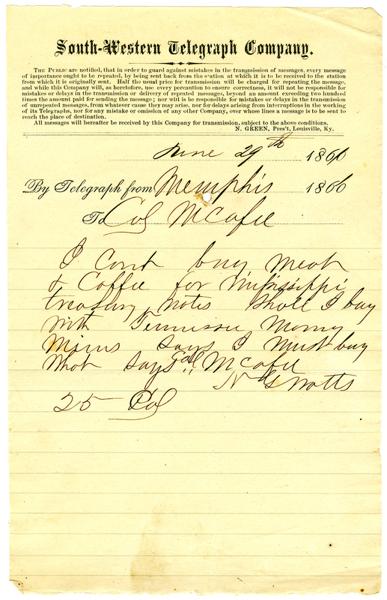 South-Western Telegraph Company.
The Public are notified, that in order to guard against mistakes in the transmission of messages, every message
of importance ought to be repeated, by being sent back from the station at which it is to be received to the station
from which it is originally sent. Half the usual price for transmission will be charged for repeating the message,
and while this Company will, as heretofore, use every precaution to ensure correctness, it will not be responsible for
mistakes or delays in the transmission or delivery of repeated messages, beyond an amount exceeding two hundred
times the amount paid for sending the message; nor will it be responsible for mistakes or delays in the transmission
of unrepeated messages, from whatever cause they may arise, nor for delays arising from interruptions in the working
of its Telegraphs, nor for any mistake or omission of any other Company, over whose lines a message is to be sent to
reach the place of destination.
All messages will hereafter be received by this Company for transmission, subject to the above conditions.
N. GREEN, Pres't, Louisville, Ky.
June 29th 186
By Telegraph from Memphis 186
To Col McAfee
I Cant buy Meat
& Coffie for Mississippi
treasury notes Shall I buy
with Tennessee Money
Mims Says I Must buy
What Says Col McAfee
Watts
25 Col